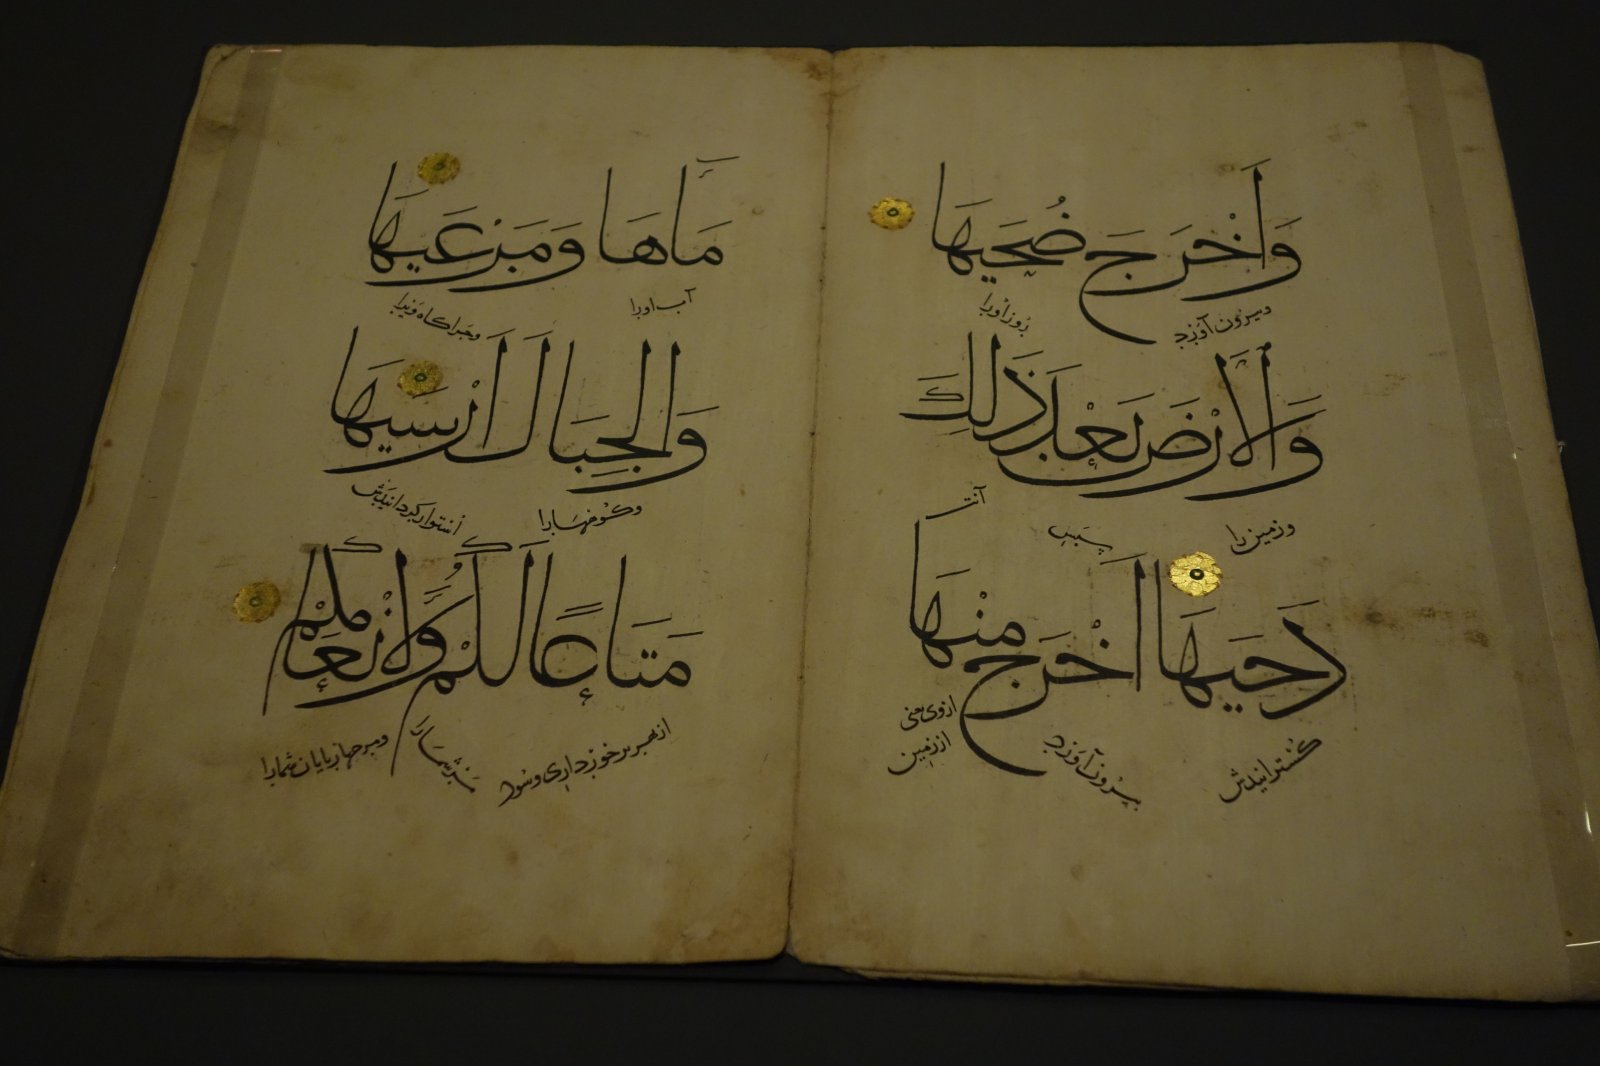 وَأَخْرَجَ ضُحَيهَا
وبيرون آورد روز او را
وَالْأَرْضَ بَعْدَ ذَلِكَ
وزمين را سپس آنت
دَحَيهَا أَخْرَجَ مِنْهَا
گسترانيدش بيرون آورد از وى يعنى از زمين
مَاهَا وَمَرْعَيهَا
آب او را وچراگاه ويرا
وَالْجِبَالَ أَرْسَيهَا
وكوهها را استوار گردانيدش
مَتَاعًا لَكُمْ وَلِأَنْعَامِكُمْ
از بهر برخوردارى وسود مر شما را ومر چهارپايان شما را